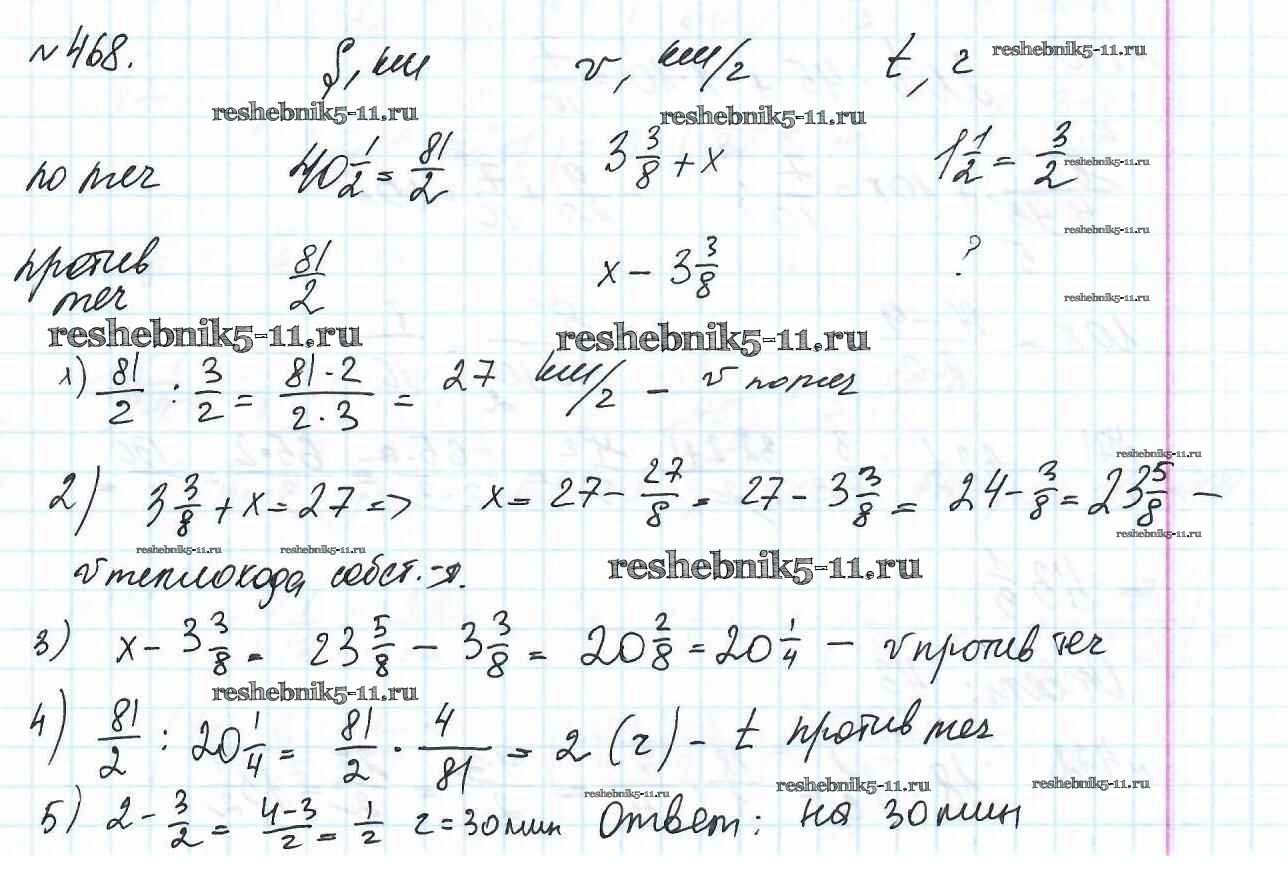 №468. S, км v, км/г t, г reshebnik5-11.ru
reshebnik5-11.ru reshebnik5-11.ru
по теч 40 1/2 = 81/2 3 3/8 + x 1 1/2 = 3/2 reshebnik5-11.ru
reshebnik5-11.ru
против теч 81/2 x - 3 3/8 ?
reshebnik5-11.ru
reshebnik5-11.ru reshebnik5-11.ru
1) 81/2 : 3/2 = 81·2/2·3 = 27 км/г - v по теч
reshebnik5-11.ru
2) 3 3/8 + x = 27 => x = 27 - 27/8 = 27 - 3 3/8 = 24 - 3/8 = 23 5/8 -
reshebnik5-11.ru reshebnik5-11.ru reshebnik5-11.ru
v теплохода собст.-я. reshebnik5-11.ru
3) x - 3 3/8 = 23 5/8 - 3 3/8 = 20 2/8 = 20 1/4 - v против теч
reshebnik5-11.ru
4) 81/2 : 20 1/4 = 81/2 · 4/81 = 2 (г) - t против теч
reshebnik5-11.ru reshebnik5-11.ru reshebnik5-11.ru
5) 2 - 3/2 = 4-3/2 = 1/2 г = 30 мин Ответ: на 30 мин